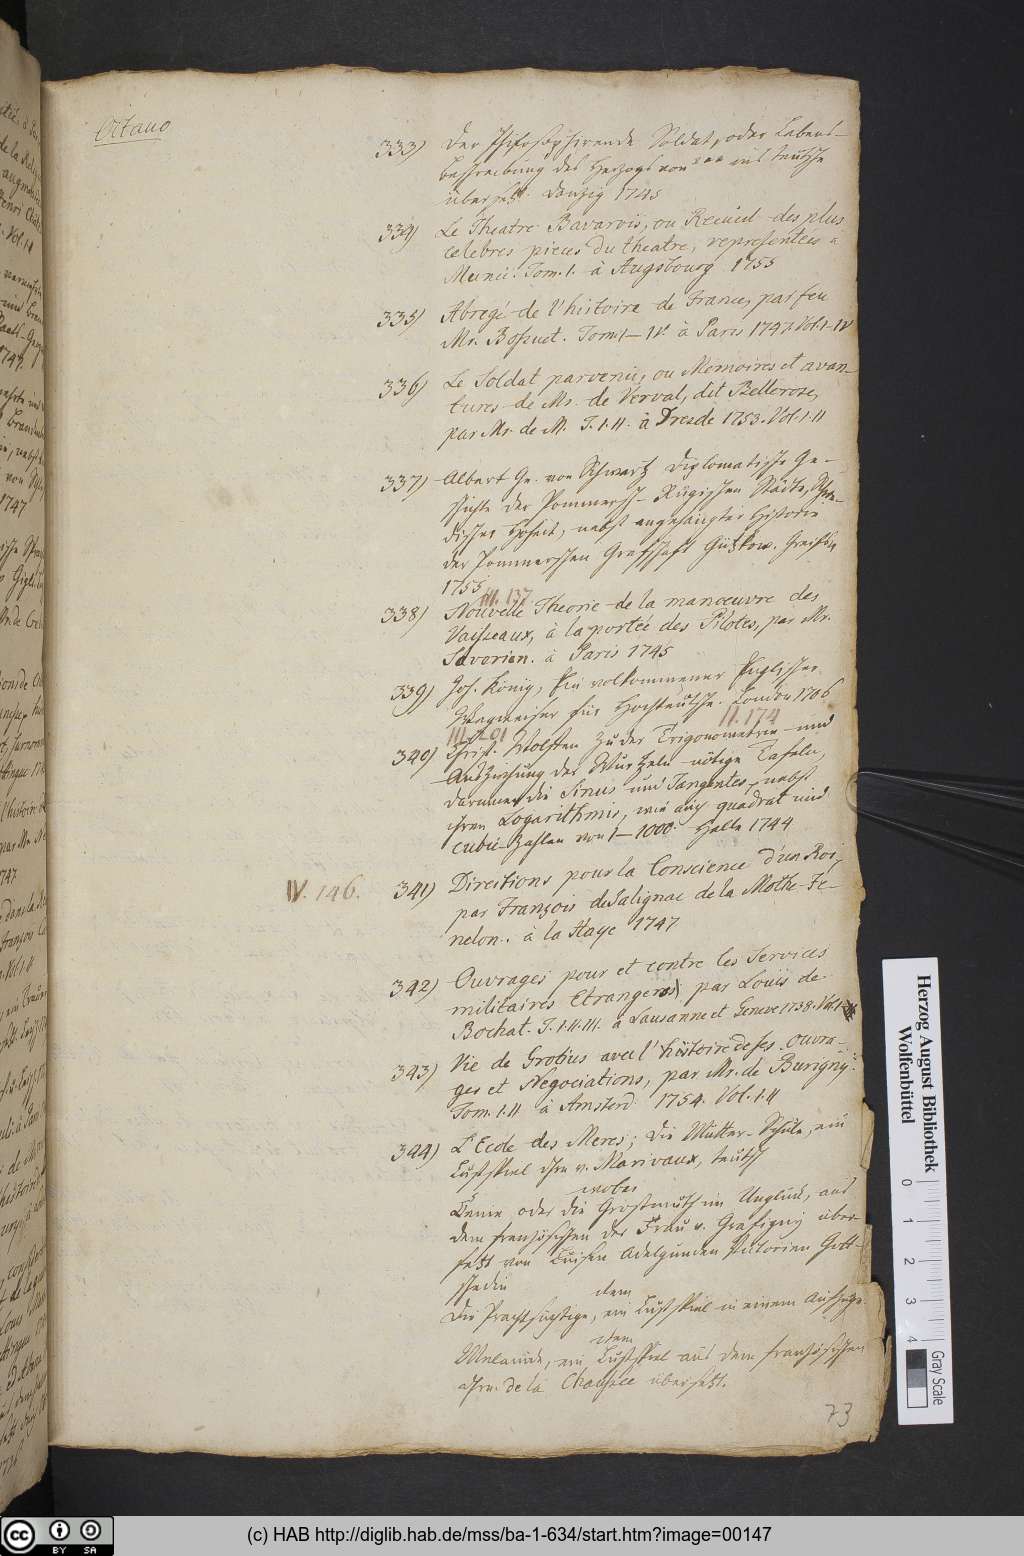 Octavo
333) Der Philosophirende Soldat, oder Lebens-
beschreibung des Herzogs von *** ins teutsche
übersetzt. Danzig 1745
334) Le Theatre Bavarois, ou Recueil des plus
celebres pieces du theatre, representées à
Munic. Tom. I. à Augsbourg 1755
335) Abregé de l'histoire de France, par feu
Mr. Bossuet. Tom. I-IV. à Paris 1747. Vol. I-IV
336) Le Soldat parvenu, ou Memoires et avan-
tures de Mr. de Verval, dit Bellerose,
par Mr. de M. T. I. II. à Dresde 1753. Vol. I. II
337) Albert Ge. von Schwartz Diplomatische Ge-
schichte der Pommersch-Rügischen Städte, Schwe-
discher Hoheit, nebst angehängter Historie
der Pommerschen Grafschafft Gützkow. Greifsw.
1755
III. 137
338) Nouvelle Theorie de la manœuvre des
Vaisseaux, à la portée des Pilotes, par Mr.
Saverien. à Paris 1745
339) Joh. König, Ein volkommener Englischer
Wegweiser für Hochteutsche. London 1706
III. 201
II. 174
340) Christ. Wolffen zu der Trigonometrie und
Ausziehung der Wurtzeln nötige Tafeln,
darinnen die Sinus und Tangentes, nebst
ihren Logarithmis, wie auch quadrat und
cubic-Zahlen von 1-1000. Halle 1744
IV. 146.
341) Directions pour la Conscience d'un Roi,
par François de Salignac de la Mothe-Fe-
nelon. à la Haye 1747
342) Ouvrages pour et contre les Services
militaires Etrangers, par Louïs de
Bochat. T. I. II. III. à Lausanne et Geneve 1738. Vol. I-
343) Vie de Grotius avec l'histoire de ses ouvra-
ges et Negociations, par Mr. de Burigny.
Tom. I. II à Amsterd. 1754. Vol. I. II
344) L'Ecole des Meres; die Mütter-Schule, ein
Lustspiel Hrn v. Marivaux, teutsch
wobei
Cenie oder die Großmuth im Unglück, aus
dem französischen der Frau v. Grafigny über-
setzt von Luisen Adelgunden Victorien Gott-
schedin
item
Die Prachtsüchtige, ein Lustspiel in einem Aufzuge
item
Melanide, ein Lustspiel aus dem französischen
Hrn. de la Chaussée übersetzt.
73
Herzog August Bibliothek
Wolfenbüttel
0 1 2 3 4
Gray Scale
cc BY SA
(c) HAB http://diglib.hab.de/mss/ba-1-634/start.htm?image=00147